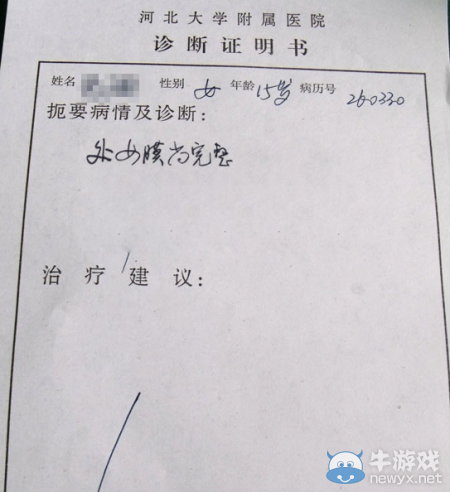 河北大学附属医院
诊断证明书
姓名 性别 女 年龄 15岁 病历号 260330
扼要病情及诊断：
处女膜尚完整
治疗建议：
牛游戏
newyx.net